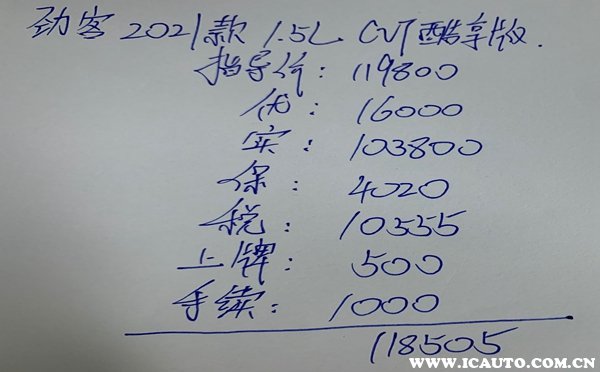 劲客 2021款 1.5L CVT酷享版.
指导价: 119800
优: 16000
实: 103800
保: 4020
税: 10555
上牌: 500
手续: 1000
118505
WWW.ICAUTO.COM.CN